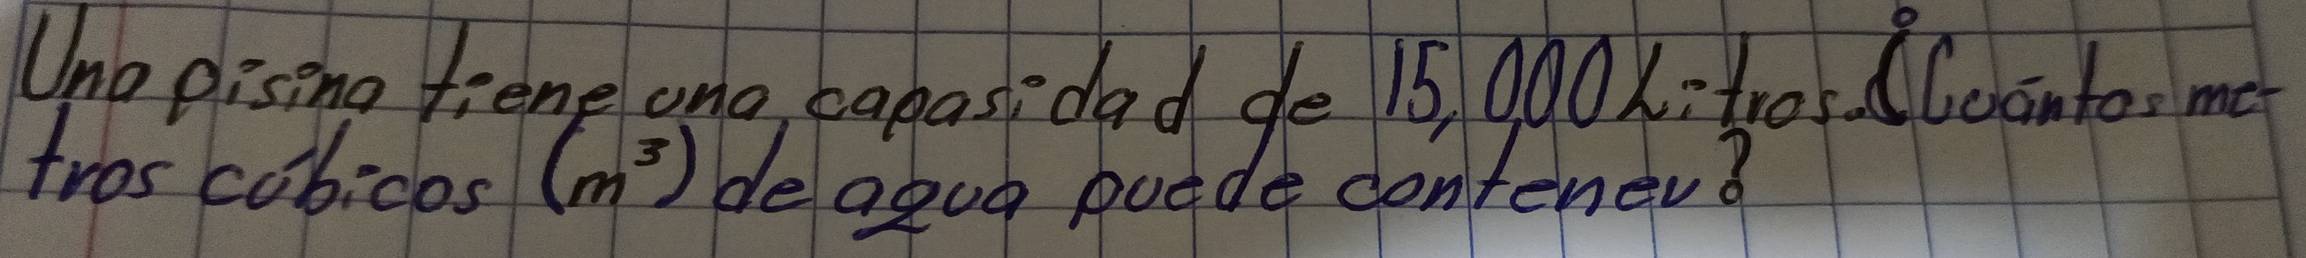 Una pisina tiene una capasidad de 15,000 Litros. ¿Cuántos me-
tros cúbicos (m³) de agua puede contener?